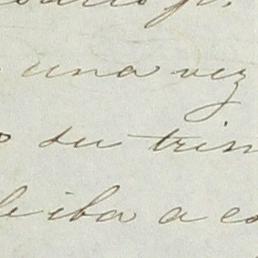 una vez
su trin
le iba a es